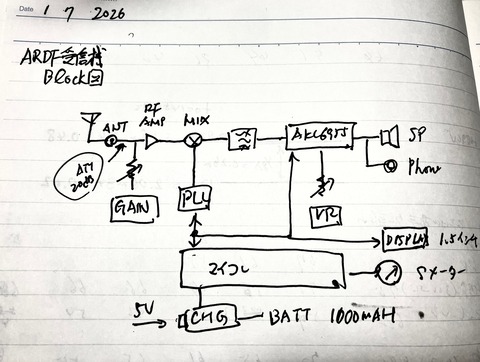 Date 1 7 2026
ARDF受信機
Block図
RF
AMP
ANT
MIX
AKC6955
SP
Phone
ATT
20dB
GAIN
PLL
VR
DISPLAY 1.5インチ
マイコン
Sメーター
5V
CHG
BATT 1000mAH